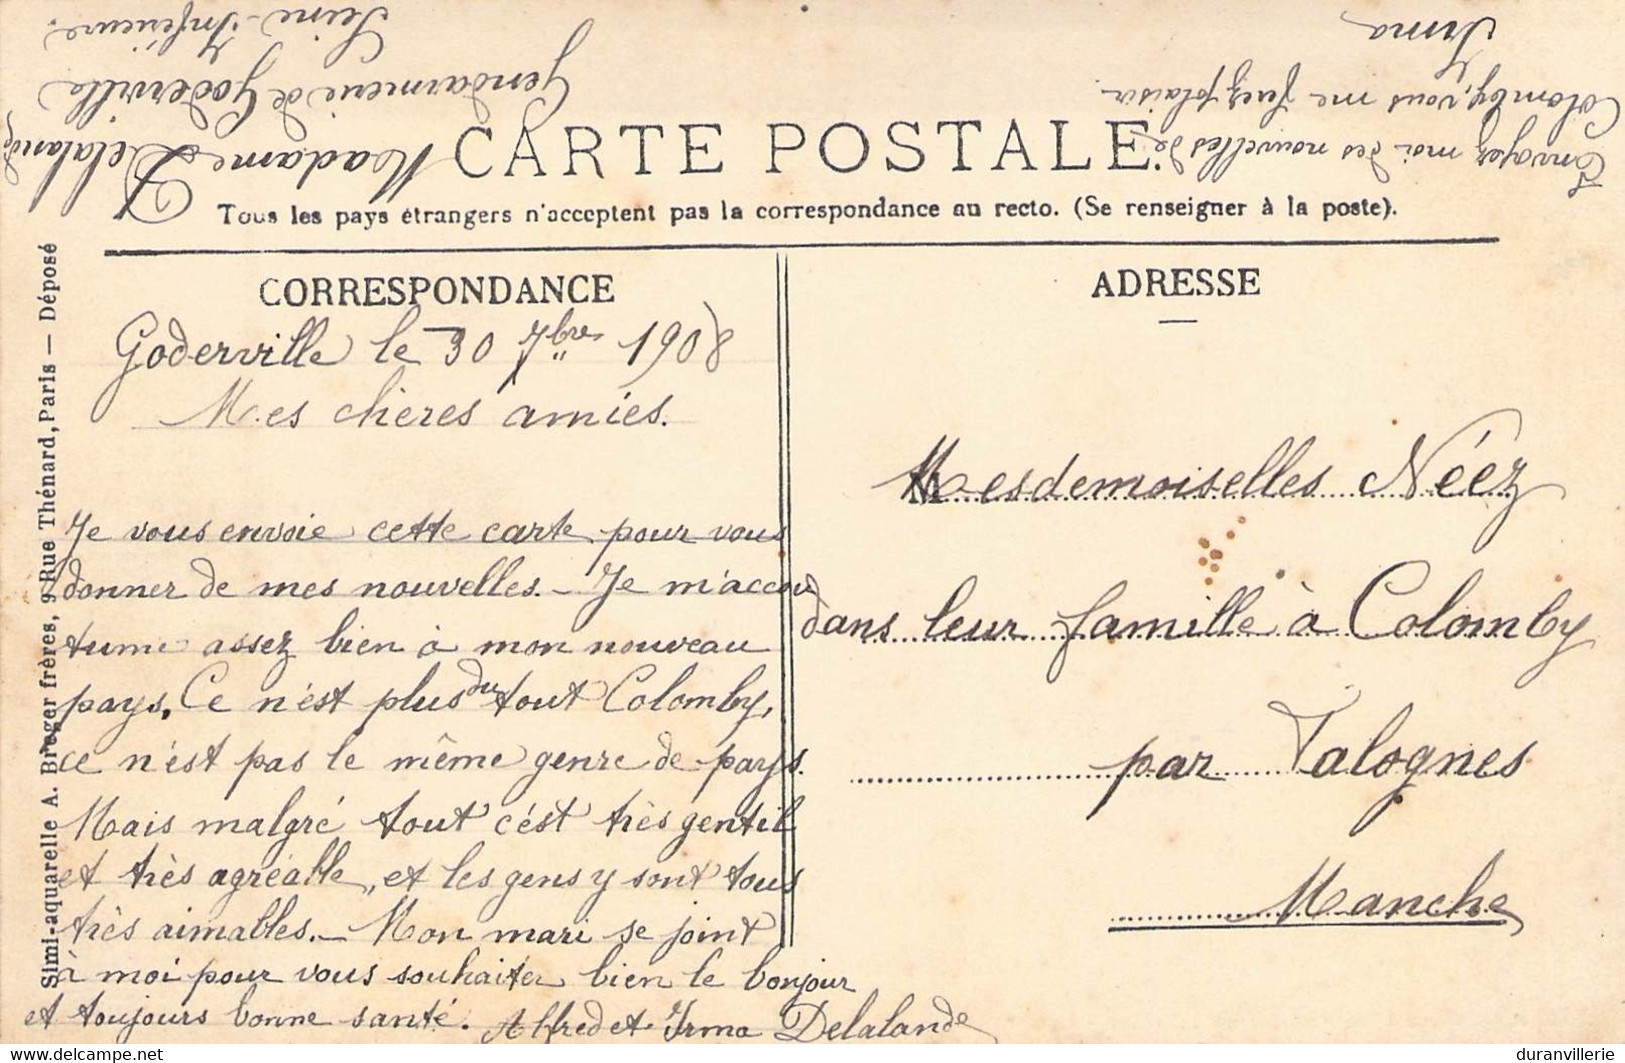 Envoyez moi des nouvelles de
Colomby, vous me ferez plaisir
Irma
Madame Delalande
Gendarmerie de Goderville
Seine-Inférieure.
CARTE POSTALE
Tous les pays étrangers n'acceptent pas la correspondance au recto. (Se renseigner à la poste).
CORRESPONDANCE
Goderville le 30 7bre 1908
Mes chères amies.
Je vous envoie cette carte pour vous
donner de mes nouvelles. - Je m'accou
tume assez bien à mon nouveau
pays. Ce n'est plus du tout Colomby,
ce n'est pas le même genre de pays.
Mais malgré tout c'est très gentil
et très agréable, et les gens y sont tous
très aimables. - Mon mari se joint
à moi pour vous souhaiter bien le bonjour
et toujours bonne santé. Alfred et Irma Delalande
ADRESSE
Mesdemoiselles Néez
dans leur famille à Colomby
par Valognes
Manche
Simi-aquarelle A. Breger frères, 9 Rue Thénard, Paris — Déposé
delcampe.net
duranvillerie